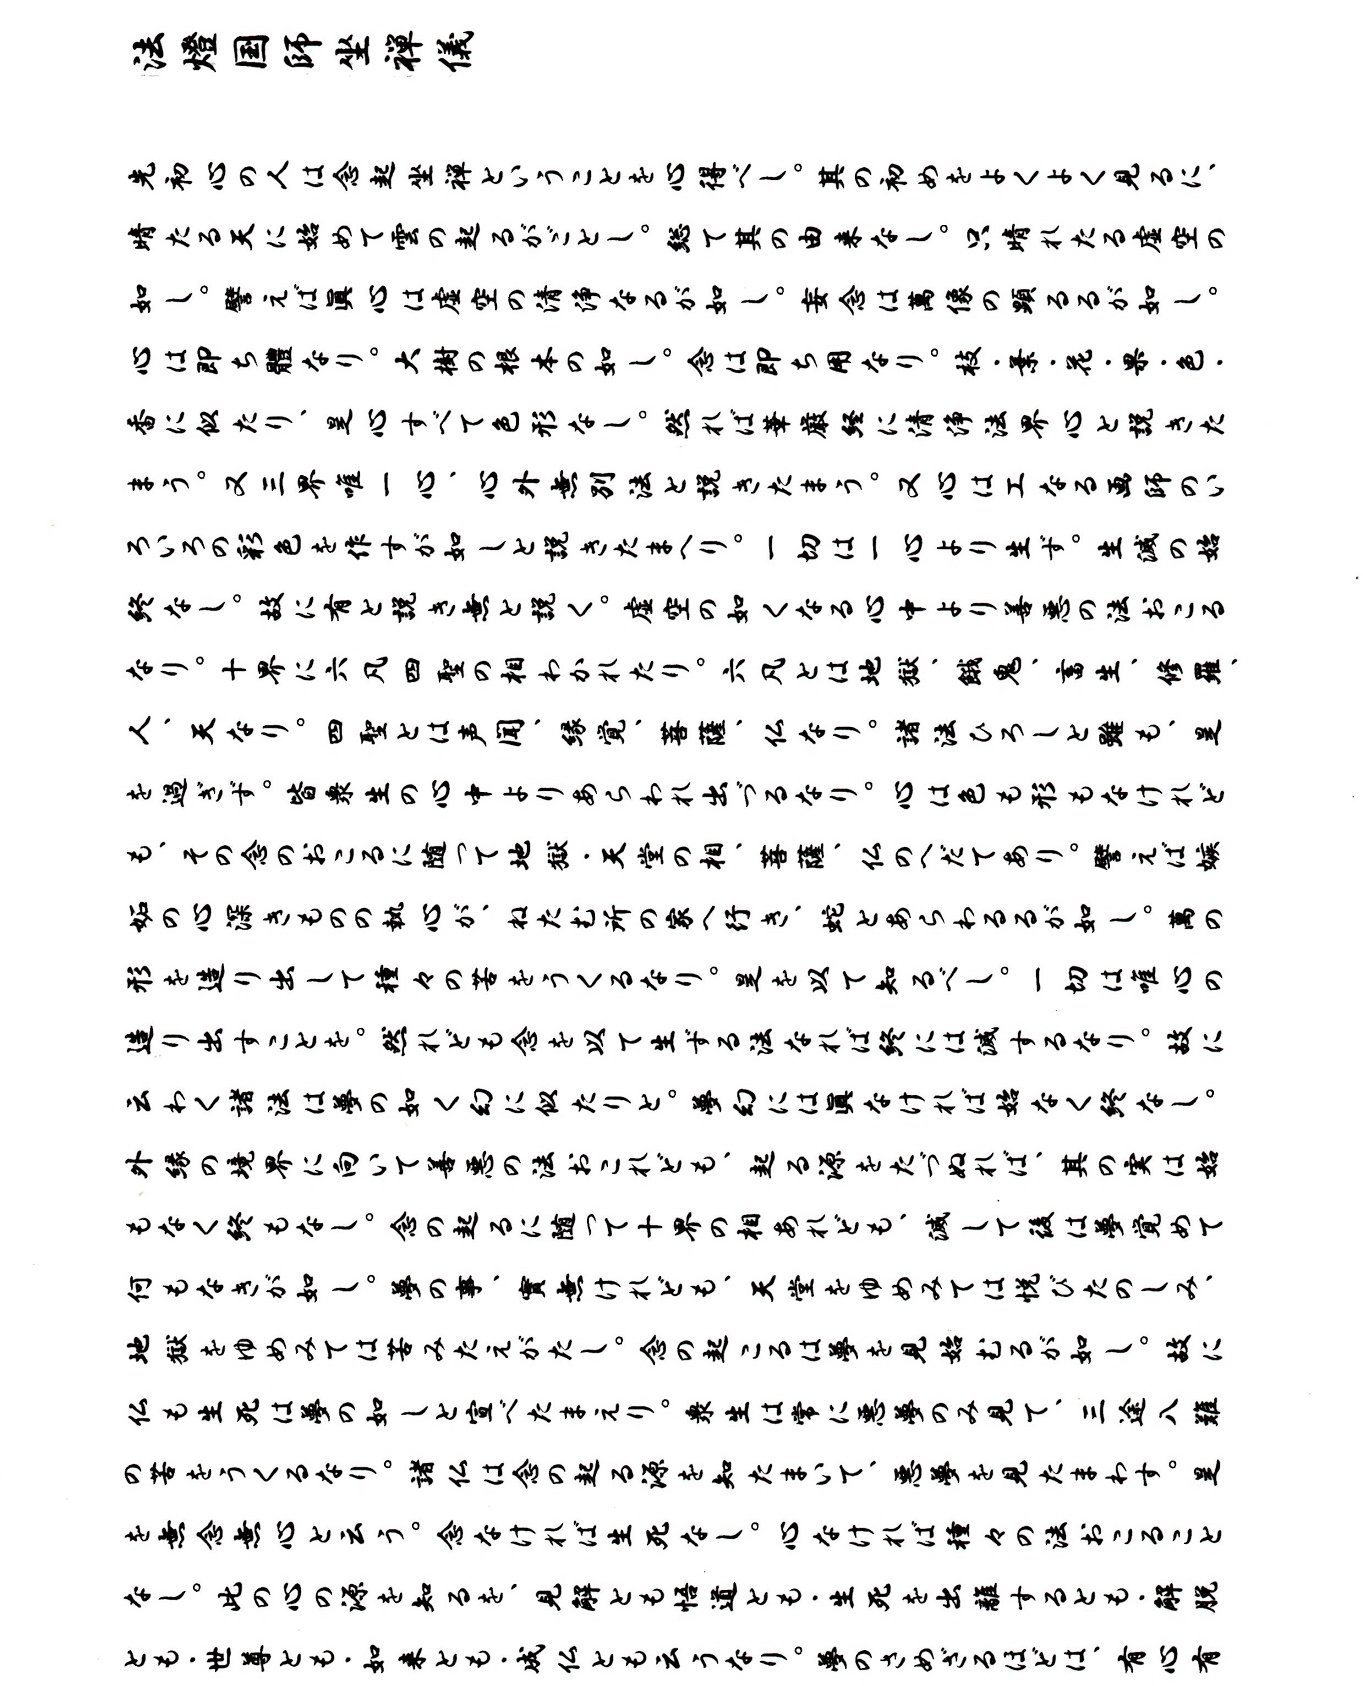 法燈国師坐禅儀
先初心の人は念起坐禅ということを心得べし。其の初めをよくよく見るに、
晴たる天に始めて雲の起るがごとし。総て其の由来なし。只晴れたる虚空の
如し。譬えば眞心は虚空の清浄なるが如し。妄念は萬像の顕るるが如し。
心は即ち體なり。大樹の根本の如し。念は即ち用なり。枝・葉・花・果・色・
香に似たり、是心すべて色形なし。然れば華厳経に清浄法界心と説きた
まう。又三界唯一心、心外無別法と説きたまう。又心は工なる画師のい
ろいろの彩色を作すが如しと説きたまへり。一切は一心より生ず。生滅の始
終なし。故に有と説き無と説く。虚空の如くなる心中より善悪の法おこる
なり。十界に六凡四聖の相わかれたり。六凡とは地獄、餓鬼、畜生、修羅、
人、天なり。四聖とは声聞、縁覚、菩薩、仏なり。諸法ひろしと雖も、是
を過ぎず。皆衆生の心中よりあらわれ出づるなり。心は色も形もなけれど
も、その念のおこるに随って地獄・天堂の相、菩薩、仏のへだてあり。譬えば嫉
妬の心深きものの執心が、ねたむ所の家へ行き、蛇とあらわるるが如し。萬の
形を造り出して種々の苦をうくるなり。是を以て知るべし。一切は唯心の
造り出すことを。然れども念を以て生ずる法なれば終には滅するなり。故に
云わく諸法は夢の如く幻に似たりと。夢幻には眞なければ始なく終なし。
外縁の境界に向いて善悪の法おこれども、起る源をたづぬれば、其の実は始
もなく終もなし。念の起るに随って十界の相あれども、滅して後は夢覚めて
何もなきが如し。夢の事、實無けれども、天堂をゆめみては悦びたのしみ、
地獄をゆめみては苦みたえがたし。念の起こるは夢を見始むるが如し。故に
仏も生死は夢の如しと宣べたまえり。衆生は常に悪夢のみ見て、三途八難
の苦をうくるなり。諸仏は念の起る源を知たまいて、悪夢を見たまわす。是
を無念無心と云う。念なければ生死なし。心なければ種々の法おこること
なし。此の心の源を知るを、見解とも悟道とも・生死を出離するとも・解脱
とも・世尊とも・如来とも・成仏とも云うなり。夢のさめざるほどは、有心有